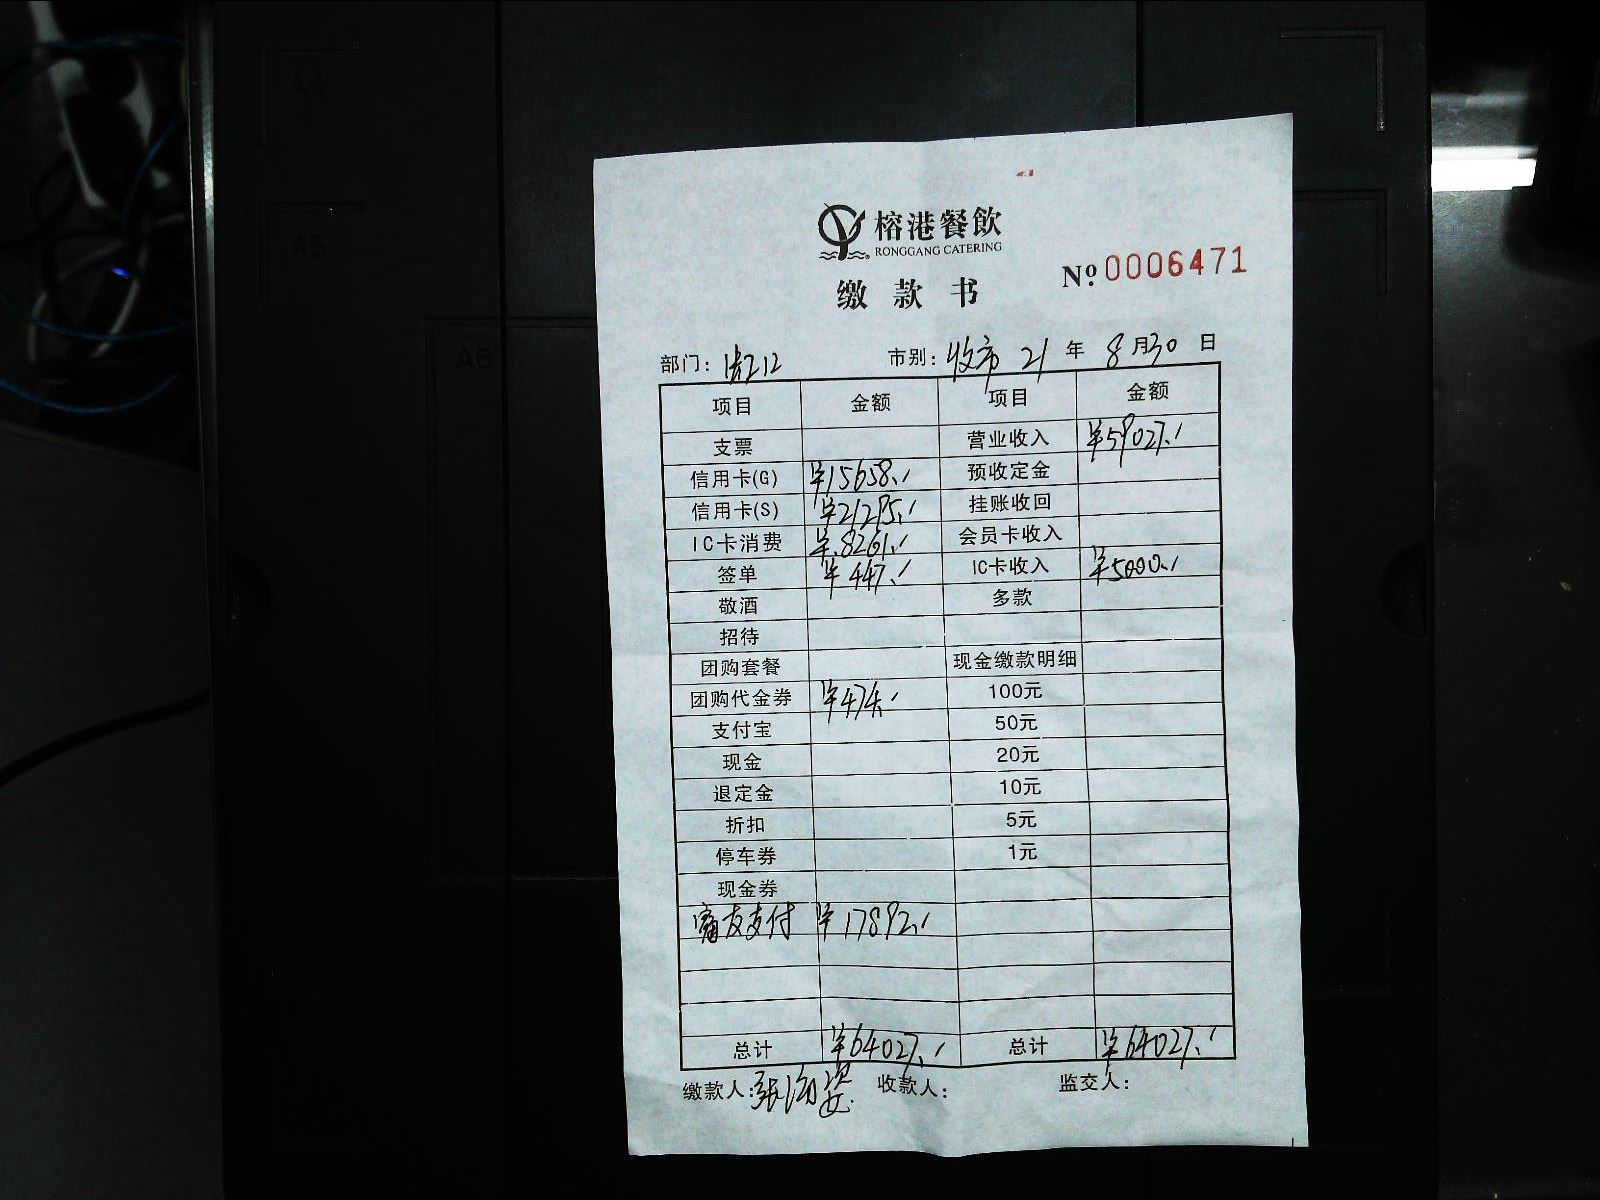 榕港餐飲
RONGGANG CATERING
缴款书
№ 0006471
部门: 市别: 收市 21 年 8 月 30 日
项目 金额 项目 金额
支票 营业收入 ¥59027./
信用卡(G) ¥15658./ 预收定金
信用卡(S) ¥21295./ 挂账收回
IC卡消费 ¥8261./ 会员卡收入
签单 ¥447./ IC卡收入 ¥5000./
敬酒 多款
招待
团购套餐 现金缴款明细
团购代金券 ¥474./ 100元
支付宝 50元
现金 20元
退定金 10元
折扣 5元
停车券 1元
现金券
富友支付 ¥17892./
总计 ¥64027./ 总计 ¥64027./
缴款人: 张 收款人: 监交人:
A5
A6